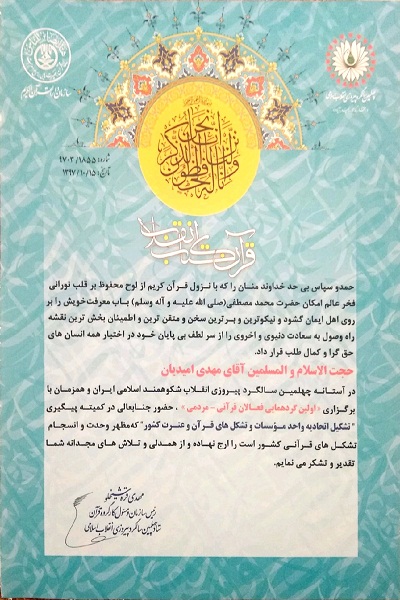 سازمان دارالقرآن الکریم
شماره: ۹۷۰۳/۱۸۵۵
تاریخ: ۱۳۹۷/۱۰/۱۵
قرآن کتاب انقلاب
حمدو سپاس بی حد خداوند منان را که با نزول قرآن کریم از لوح محفوظ بر قلب نورانی
فخر عالم امکان حضرت محمد مصطفی(صلی الله علیه و آله وسلم) باب معرفت‌خویش را بر
روی اهل ایمان گشود و نیکوترین و برترین سخن و متقن ترین و اطمینان بخش ترین نقشه
راه وصول به سعادت دنیوی و اخروی را از سر لطف بی پایان خود در اختیار همه انسان های
حق گرا و کمال طلب قرار داد.
حجت الاسلام و المسلمین آقای مهدی امیدیان
در آستانه چهلمین سالگرد پیروزی انقلاب شکوهمند اسلامی ایران و همزمان با
برگزاری «اولین گردهمایی فعالان قرآنی - مردمی» ، حضور جنابعالی در کمیته پیگیری
"تشکیل اتحادیه واحد مؤسسات و تشکل های قرآن و عترت کشور" که‌مظهر وحدت و انسجام
تشکل های قرآنی کشور است را ارج نهاده و از همدلی و تلاش های مجدانه شما
تقدیر و تشکر می نمایم.
مهدی قره شیخلو
رئیس سازمان و مسئول کارگروه قرآن
ستاد چهلمین سالگرد پیروزی انقلاب اسلامی